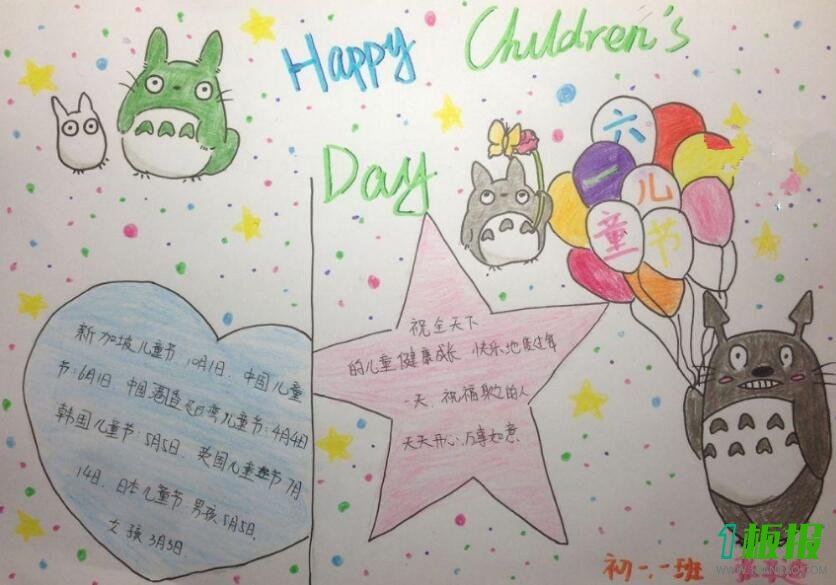 Happy
Children's
Day
六
一
儿
童
节
新加坡儿童节 10月1日、中国儿童
节:6月1日、中国港
湾儿童节:4月4日
韩国儿童节:5月5日、英国儿童节7月
14日、日本儿童节:男孩5月5日、
女孩3月3日
祝全天下
的儿童健康成长 快乐地度过每
一天、祝福
的人
天天开心、万事如意
初一.一班
1板报